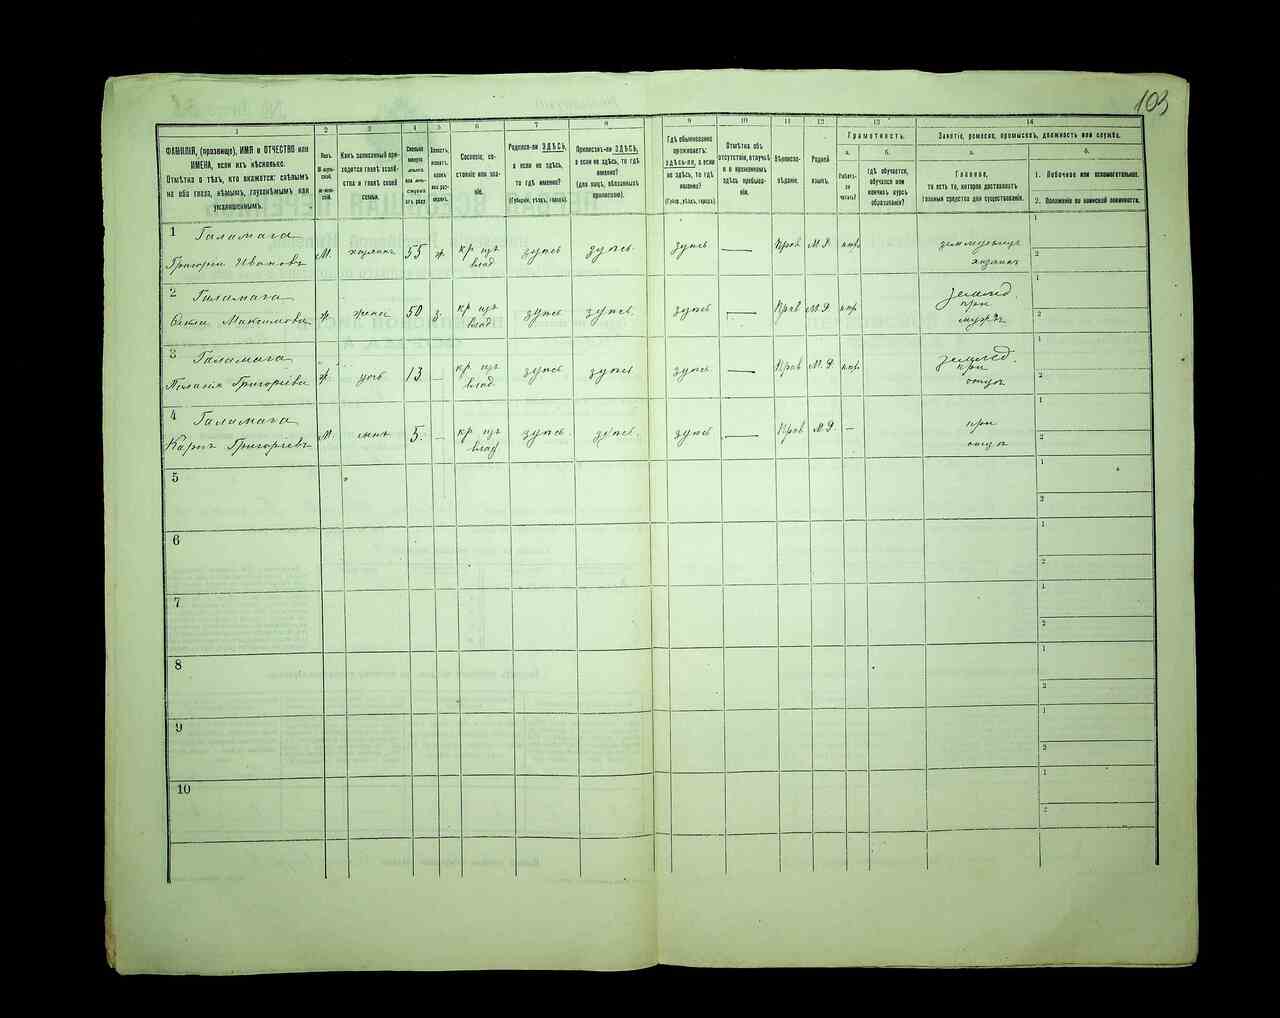 103
1
2
3
4
5
6
7
8
9
10
11
12
13
14
ФАМИЛІЯ, (прозвище), ИМЯ и ОТЧЕСТВО или
ИМЕНА, если ихъ нѣсколько.
Отмѣтка о тѣхъ, кто окажется: слѣпымъ
на оба глаза, нѣмымъ, глухонѣмымъ или
умалишеннымъ.
Полъ.
М-мужской.
Ж-женскій.
Какъ записанный при-
ходится главѣ хозяй-
ства и главѣ своей
семьи.
Сословіе, со-
стояніе или зва-
ніе.
Родился-ли ЗДѢСЬ,
а если не здѣсь,
то гдѣ именно?
(Губернія, уѣздъ, городъ).
Приписанъ-ли ЗДѢСЬ,
а если не здѣсь, то гдѣ
именно?
(для лицъ, обязанныхъ
припискою).
Гдѣ обыкновенно
проживаетъ:
ЗДѢСЬ-ЛИ, а если
не здѣсь, то гдѣ
именно?
(Губернія, уѣздъ, городъ).
Отмѣтка объ
отсутствіи, отлучкѣ
и о временномъ
здѣсь пребыва-
ніи.
Вѣроиспо-
вѣданіе.
Родной
языкъ.
Грамотность.
а.
Умѣетъ-
ли
читать?
б.
Гдѣ обучается,
обучался или
кончилъ курсъ
образованія?
Занятіе, ремесло, промыселъ, должность или служба.
а.
Главное,
то есть то, которое доставляетъ
главныя средства для существованія.
б.
1. Побочное или вспомогательное.
2. Положеніе по воинской повинности.
1 Галамага
Григорій Ивановъ М. хозяинъ 55 ж. кр. изъ влад здѣсь здѣсь здѣсь — Прав М.Р. земледѣлецъ хозяинъ 1 2
2 Галамага
Максимова ж. жена 50 з. кр. изъ влад. здѣсь здѣсь. здѣсь — Прав М.Р. землед. при мужѣ 1 2
3 Галамага
Григоріева ж. дочь 13 — кр. изъ влад. здѣсь здѣсь здѣсь — Прав М.Р. землед. при отцѣ 1 2
4 Галамага
Карпъ Григоріевъ М. сынъ 5. — кр. изъ влад здѣсь. здѣсь. здѣсь — Прав М.Р. — при отцѣ 1 2
5 1 2
6 1 2
7 1 2
8 1 2
9 1 2
10 1 2